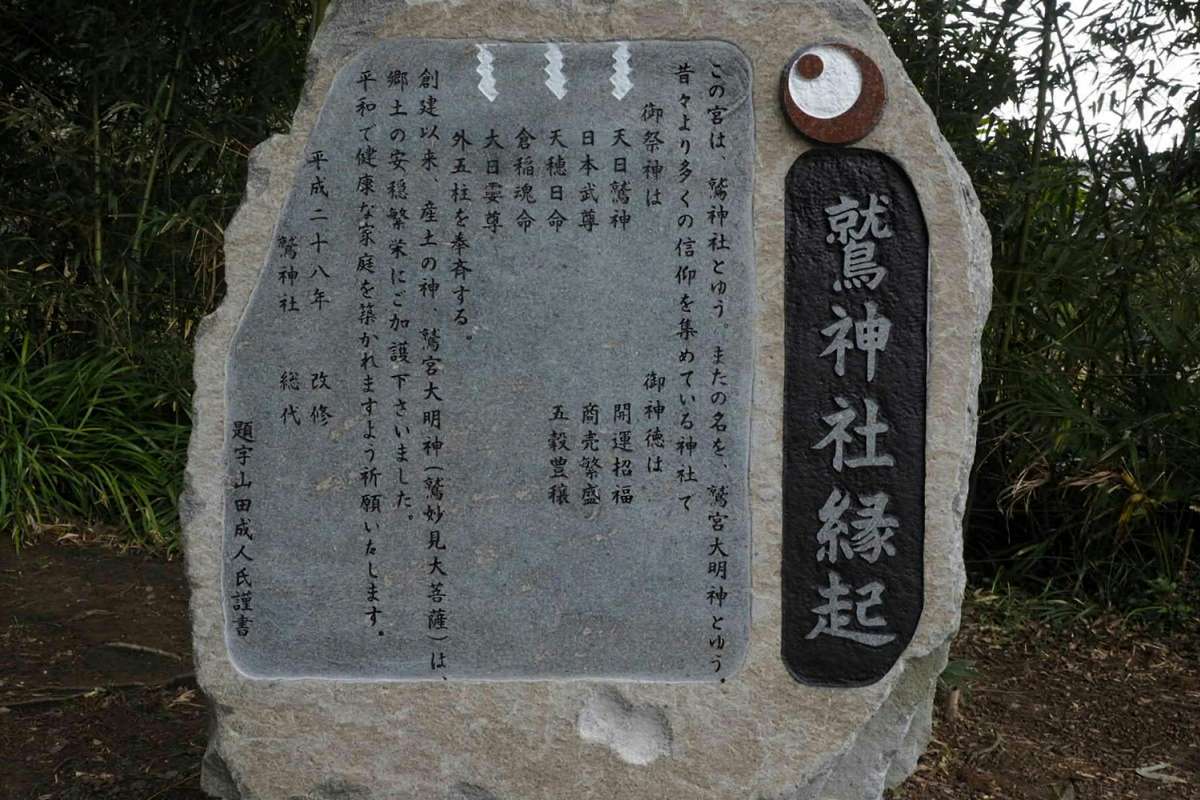 鷲神社縁起
この宮は、鷲神社とゆう。またの名を、鷲宮大明神とゆう。
昔々より多くの信仰を集めている神社で
御祭神は 御神徳は
天日鷲神 開運招福
日本武尊 商売繁盛
天穂日命 五穀豊穣
倉稲魂命
大日孁尊
外五柱を奉斉する。
創建以来、産土の神、鷲宮大明神(鷲妙見大菩薩)は、
郷土の安穏繁栄にご加護下さいました。
平和で健康な家庭を築かれますよう祈願いたします。
平成二十八年 改修
鷲神社 総代
題字山田成人氏謹書